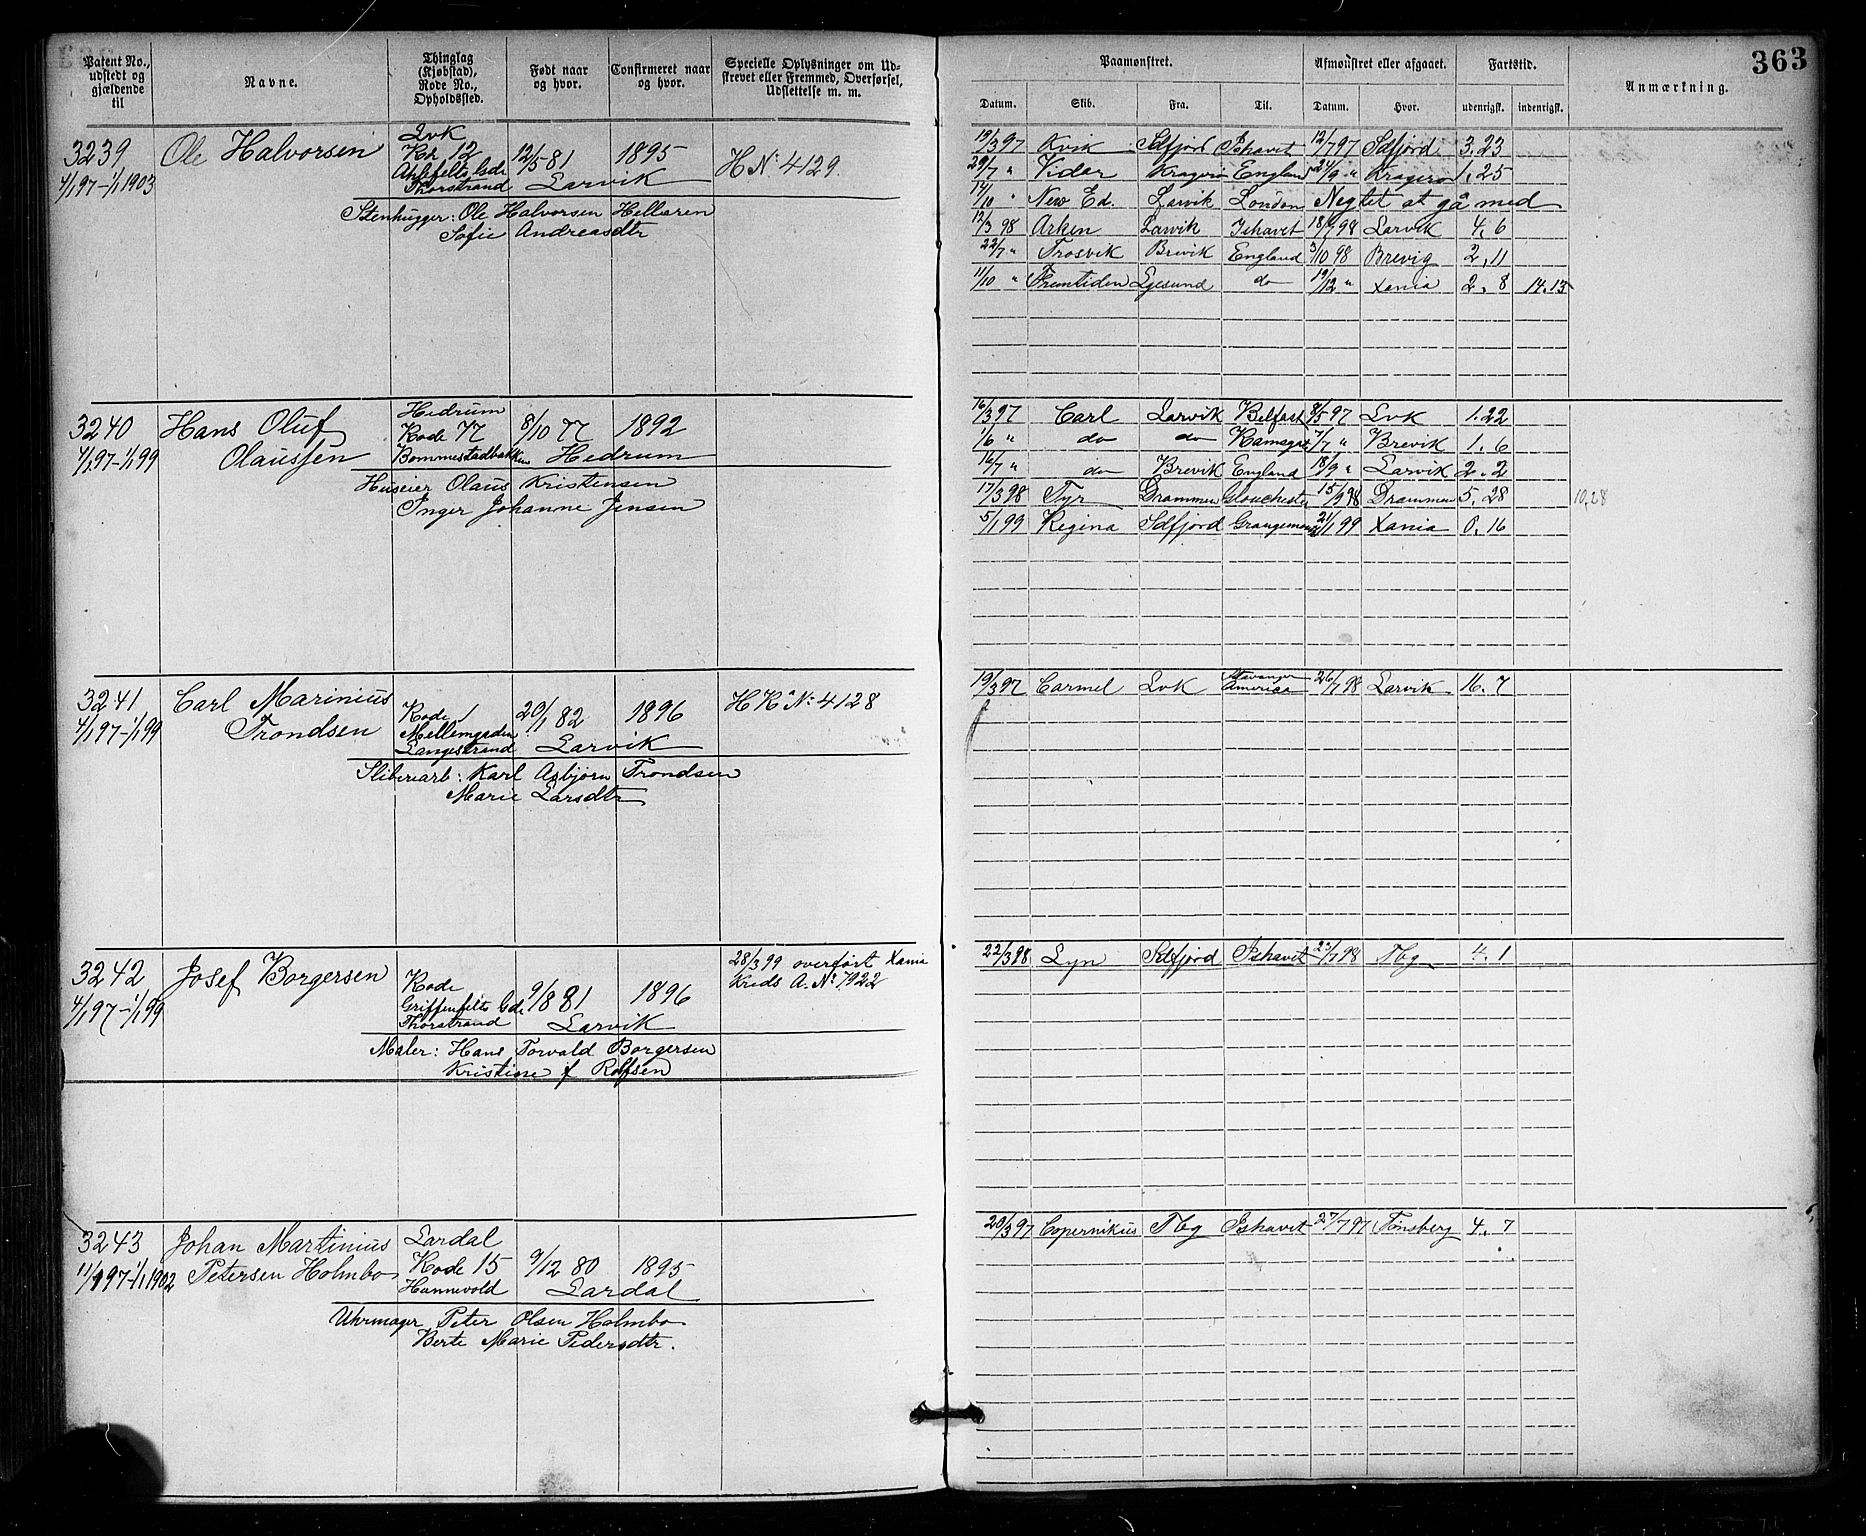 363
Patent No., udstedt og gjældende til
Navne.
Thinglag (Kjøbstad), Rode No., Opholdssted.
Født naar og hvor.
Confirmeret naar og hvor.
Specielle Oplysninger om Udskrevet eller Fremmed, Overførsel, Udslettelse m. m.
Paamønstret.
Afmønstret eller afgaaet.
Fartstid.
Anmærkning.
Datum. Skib. Fra. Til. Datum. Hvor. udenrigsk. indenrigsk.
3239
4/1 97–1/1 1903
Ole Halvorsen
Lvk
Rd. 12
Thorstrand
12/5 81
Larvik
1895
H No 4129
Stenhugger: Ole Halvorsen Hellaren
Sofie Andreasdtr
19/3 97 Kvik Sdfjord Ishavet 12/7 97 Sdfjord 3.23
29/7 " Vidar Kragerø England 24/9 " Kragerø 1.25
14/10 " New Ed. Larvik London Negtet at gå med
12/3 98 Arken Larvik Ishavet 18/7 98 Larvik 4.6
22/7 " Trosvik Brevik England 3/10 98 Brevig 2.11
11/10 " Fremtiden Lgesund do 19/12 " Xania 2.8 14.15
3240
4/1 97–1/1 99
Hans Oluf
Olaussen
Hedrum
Rode 77
Bommestadbakken
8/10 77
Hedrum
1892
Huseier Olaus Kristensen
Inger Johanne Jensen
16/3 97 Carl Larvik Belfast 8/5 97 Lvk 1.22
1/6 " do do Ramsgat 7/7 " Brevik 1.6
16/7 " do Brevik England 18/9 " Larvik 2.2
17/3 98 Tyr Drammen Glouchester 15/9 98 Drammen 5.28 10,28
5/1 99 Regina Sdfjord Grangemouth 21/1 99 Xania 0.16
3241
4/1 97–1/1 99
Carl Marinius
Trondsen
Rode 1
Mellemgaden
Langestrand
20/1 82
Larvik
1896
H R No 4128
Sliberiarb: Karl Asbjørn Trondsen
Marie Larsdtr
19/3 97 Carmel Lvk Stavanger America 26/7 98 Larvik 16.7
3242
4/1 97–1/1 99
Josef Borgersen
Rode
Griffenfelts Gde
Thorstrand
9/8 81
Larvik
1896
28/3 99 overført Xania
Kreds A. No 7922
Maler: Hans Torvald Borgersen
Kristine f Rolfsen
22/3 98 Lyn Sdfjord Ishavet 23/7 98 Tbg 4.1
3243
11/1 97–1/1 1902
Johan Martinius
Petersen Holmbo
Lardal
Rode 15
Hannevold
9/12 80
Lardal
1895
Uhrmager Peter Olsen Holmbo
Berte Marie Pedersdtr.
20/3 97 Copernikus Tbg Ishavet 27/7 97 Tønsberg 4.7